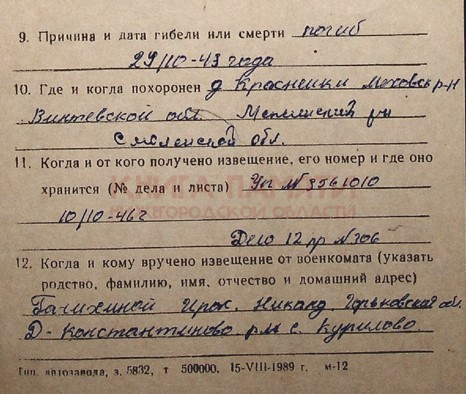 9. Причина и дата гибели или смерти погиб
29/10-43 года
10. Где и когда похоронен д Красненки р-н
Витебской обл. рн
Смоленской обл.
11. Когда и от кого получено извещение, его номер и где оно
хранится (№ дела и листа) Уп №9561010
КНИГА ПАМЯТИ
НИЖЕГОРОДСКОЙ ОБЛАСТИ
10/10-46г
Дело 12 №306
12. Когда и кому вручено извещение от военкомата (указать
родство, фамилию, имя, отчество и домашний адрес)
Горьковской обл.
Д-Константиново р-н с. Курилово
Тип. автозавода, з. 5832, т 500000, 15-VIII-1989 г. м-12